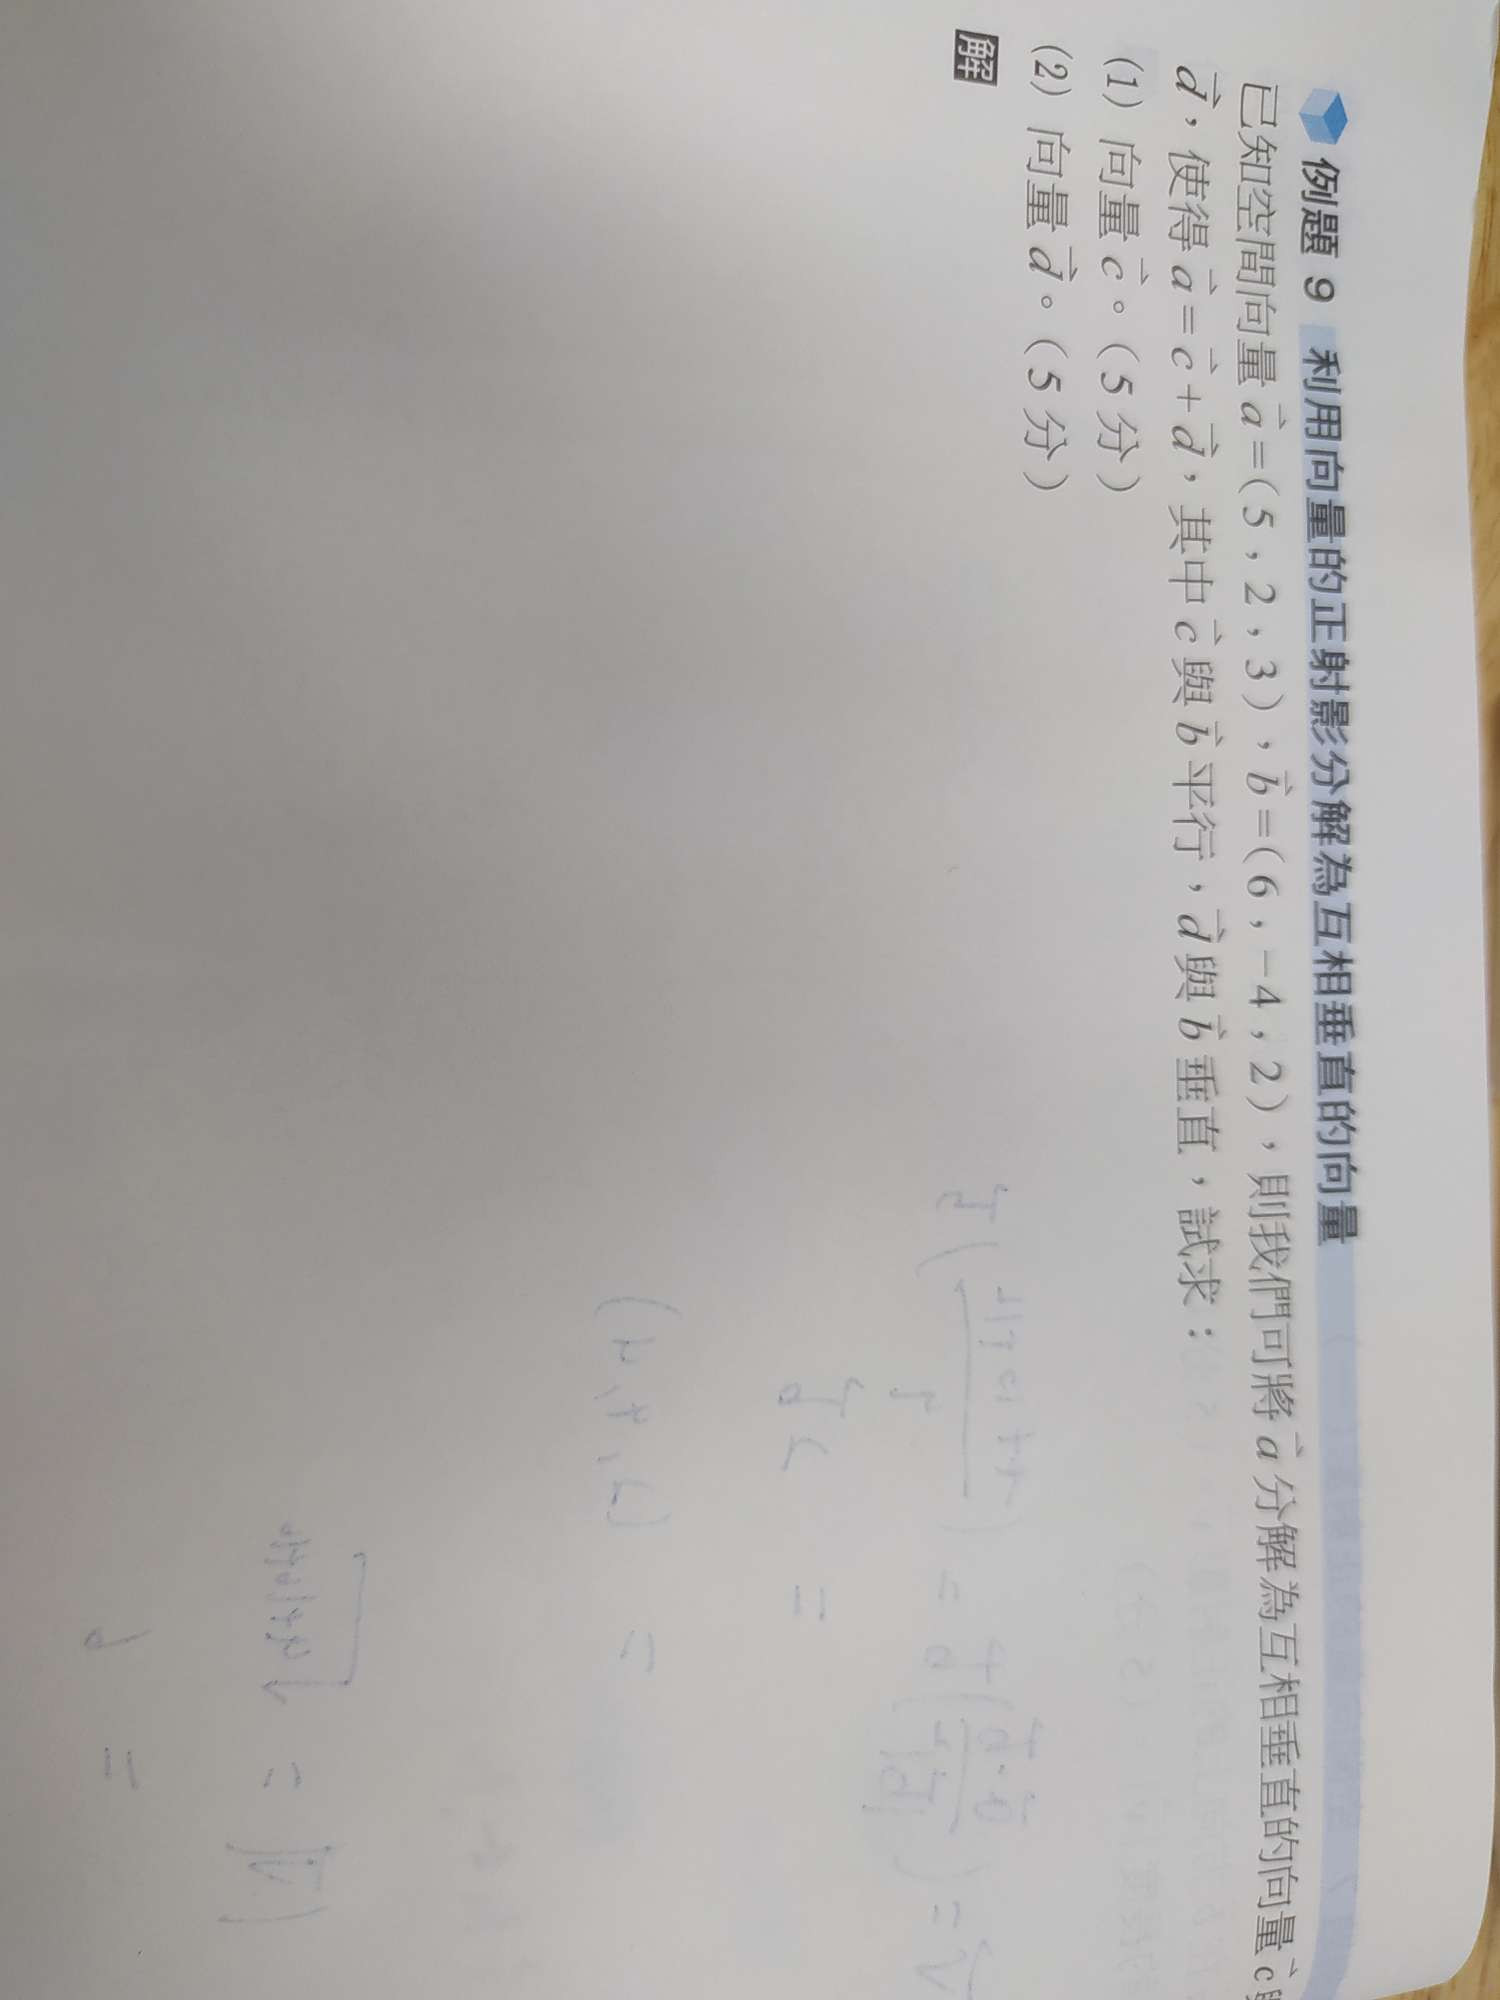 例題 9 利用向量的正射影分解為互相垂直的向量
已知空間向量 a⃗=(5,2,3),b⃗=(6,-4,2),則我們可將 a⃗ 分解為互相垂直的向量 c⃗
d⃗,使得 a⃗=c⃗+d⃗,其中 c⃗ 與 b⃗ 平行,d⃗ 與 b⃗ 垂直,試求:
(1) 向量 c⃗。(5分)
(2) 向量 d⃗。(5分)
解